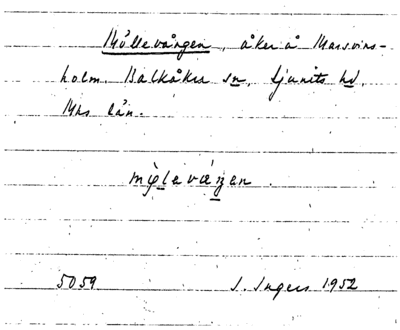 Möllevången, åker å Marsvins-
holm. Balkåkra sn, Ljunits hd,
Mhs län.
5059 I. Ingers 1952